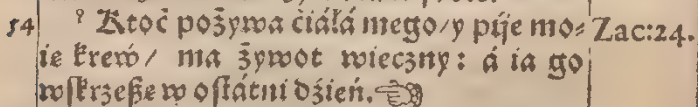 54 ² Ktoć pożywa ćiáłá mego/ y pije mo⸗ Zac:24.
ie krew/ ma żywot wieczny: á ia go
wſkrzeßę w oſtátni dźień. ☜